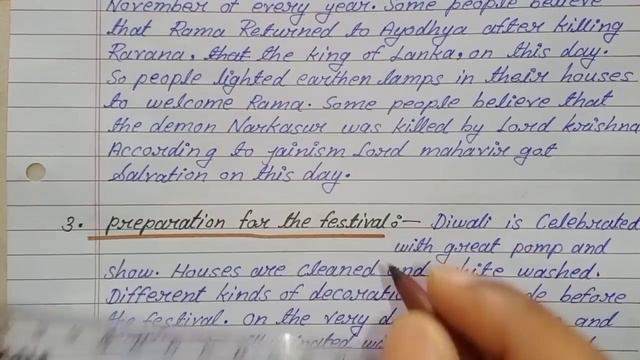 November of every year. Some people believe
that Rama Returned to Ayodhya after killing
Ravana, that the king of Lanka, on this day.
So people lighted earthen lamps in their houses
to welcome Rama. Some people believe that
the demon Narkasur was killed by Lord krishna
According to jainism Lord mahavir got
Salvation on this day.
3. preparation for the festival:— Diwali is Celebrated
with great pomp and
show. Houses are cleaned and white washed.
Different kinds of decorati de before
the festival. on the very d and